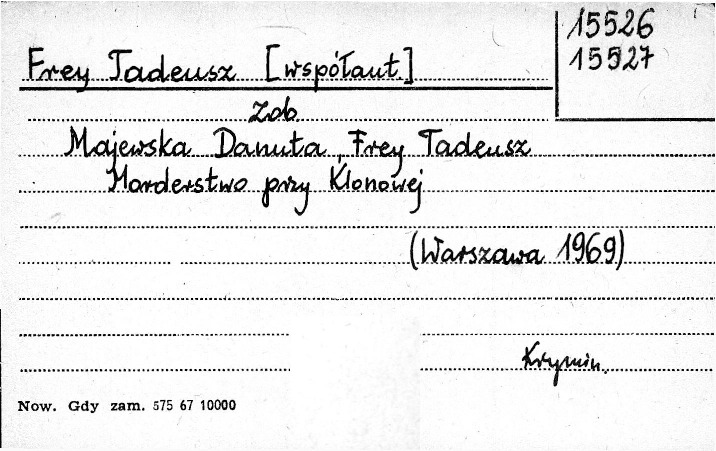 15526
15527
Frey Tadeusz [współaut.]
zob.
Majewska Danuta, Frey Tadeusz
Morderstwo przy Klonowej
(Warszawa 1969)
Krymin.
Now. Gdy zam. 575 67 10000